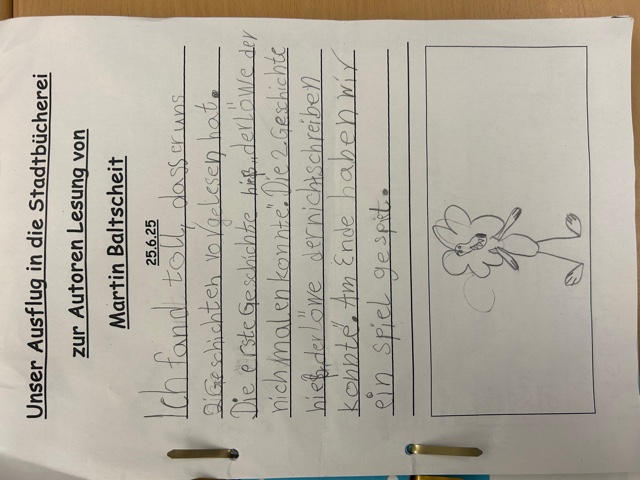 Unser Ausflug in die Stadtbücherei
zur Autoren Lesung von
Martin Baltscheit
25.6.25
Ich fand toll, dass er uns
2 Geschichten vorgelesen hat.
Die erste Geschichte hieß „der Löwe der
nich malen konnte". Die 2. Geschichte
hieß „der Löwe der nicht schreiben
konnte". Am Ende haben wir
ein spiel gespilt.